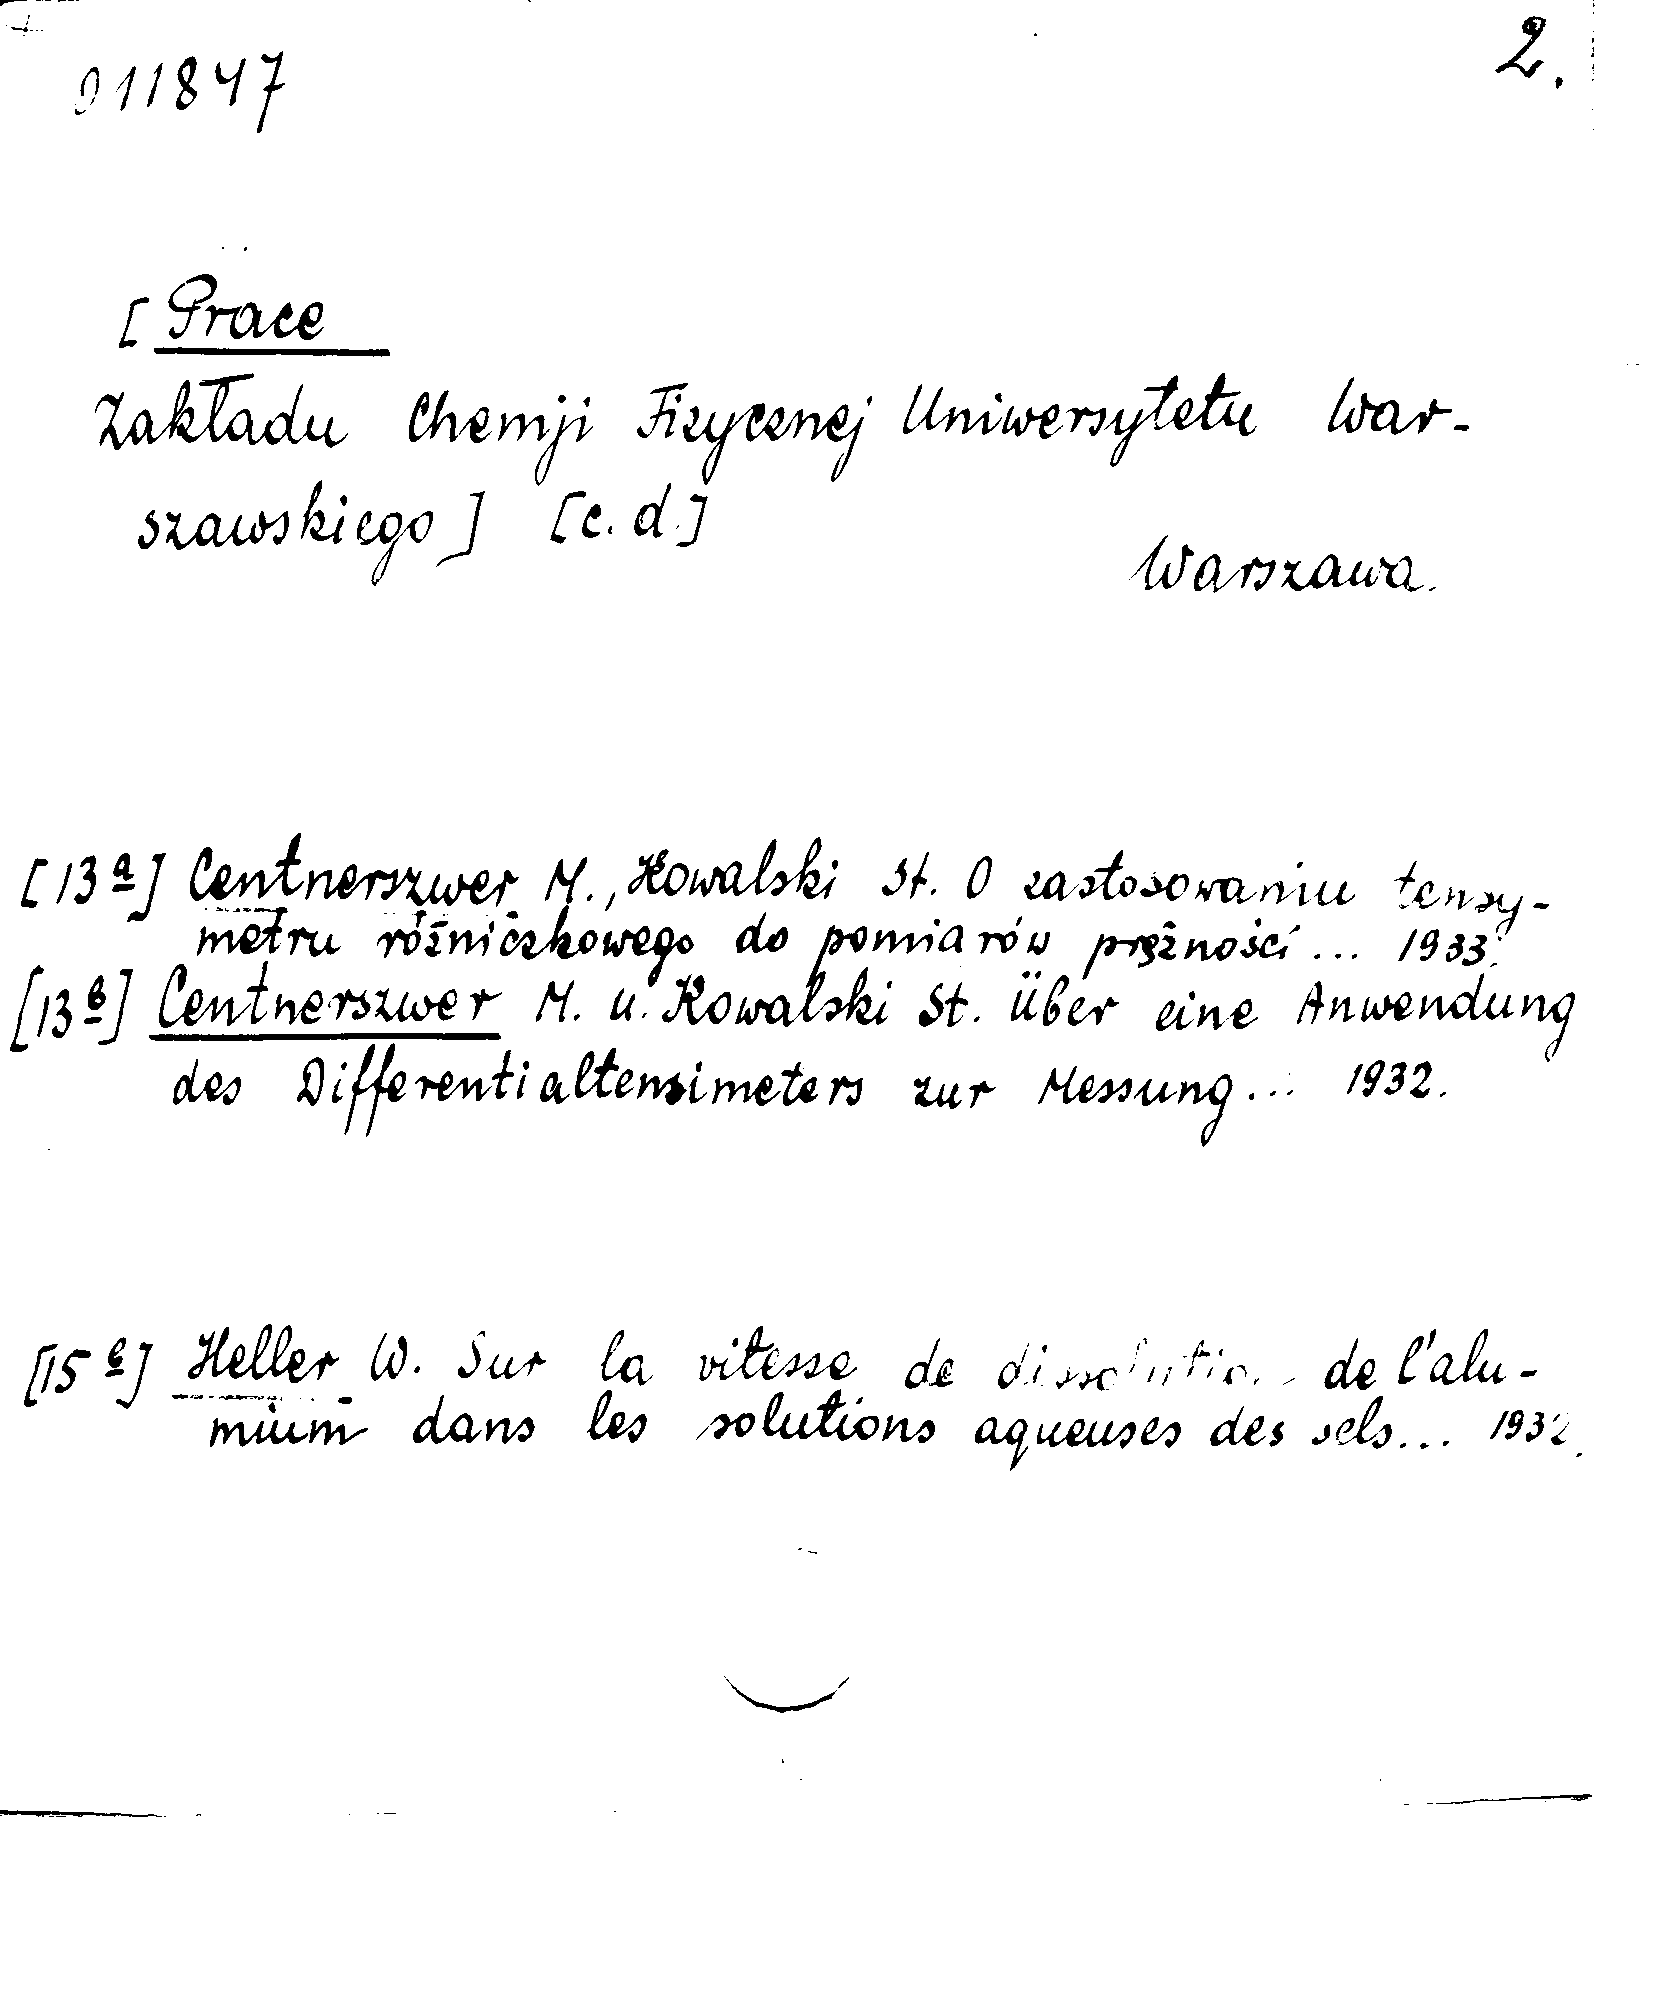 011847
2.
[Prace
Zakładu Chemji Fizycznej Uniwersytetu War-
szawskiego] [c.d.]
Warszawa.
[13a] Centnerszwer M., Kowalski St. O zastosowaniu tensy-
metru różniczkowego do pomiarów prężności... 1933.
[13b] Centnerszwer M. u. Kowalski St. Über eine Anwendung
des Differentialtensimeters zur Messung... 1932.
[15b] Heller W. Sur la vitesse de dissolution de l'alu-
mium dans les solutions aqueuses des sels... 1932.